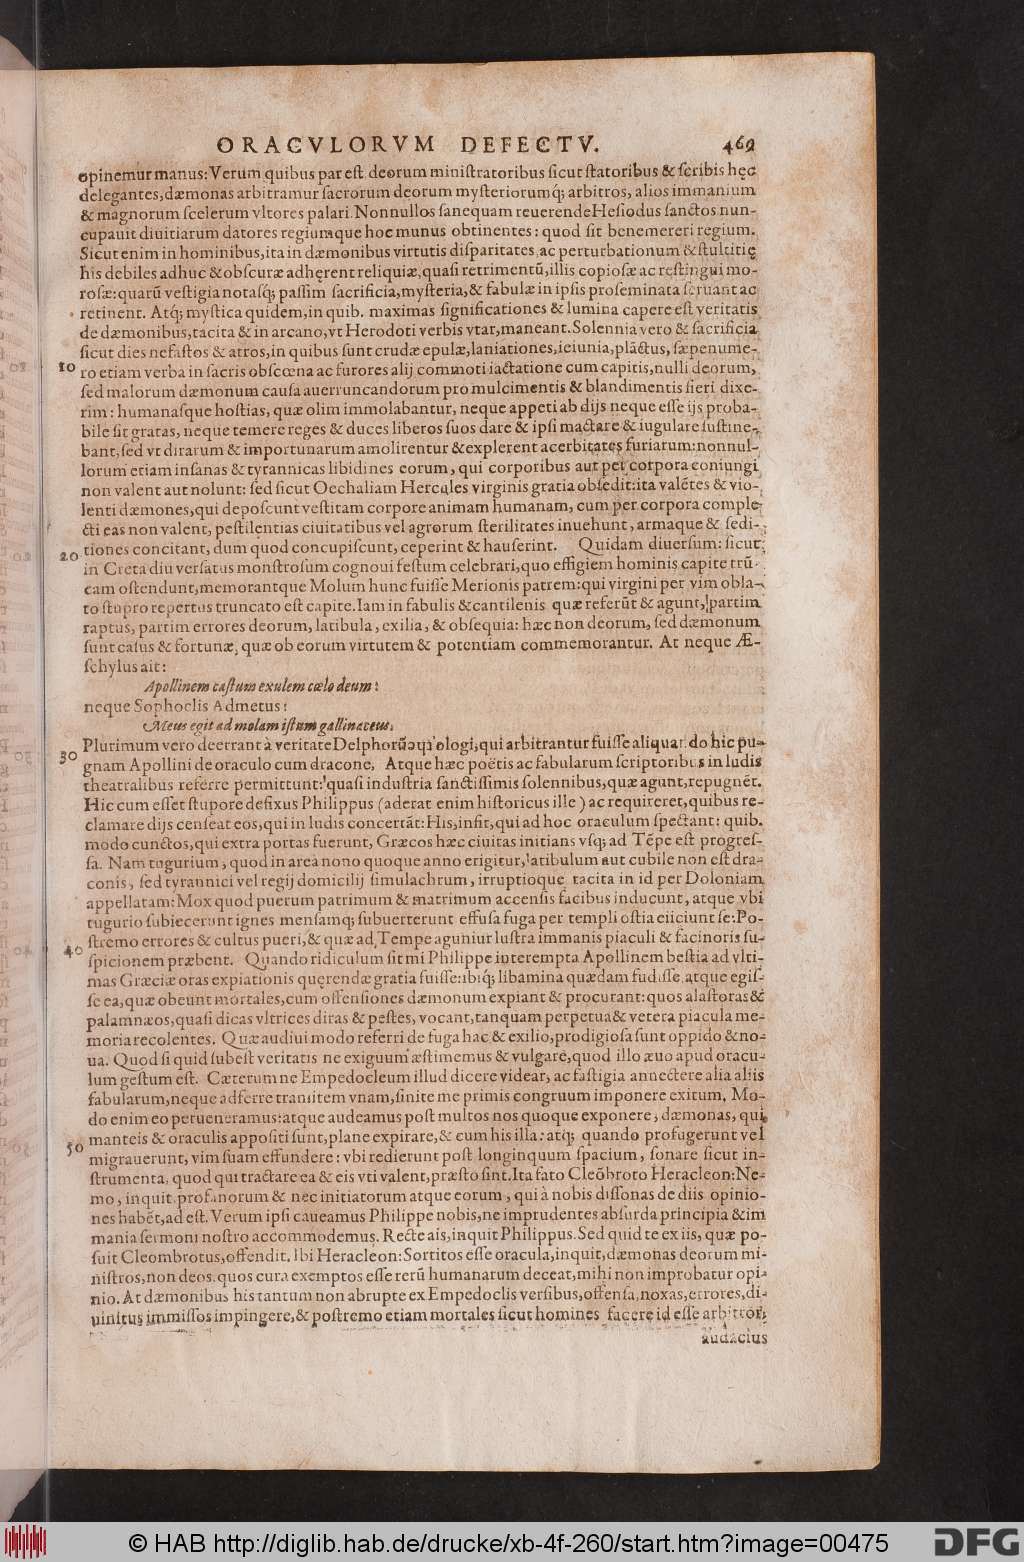 ORACVLORVM DEFECTV. 469
opinemur manus: Verum quibus par est deorum ministratoribus sicut statoribus & scribis hęc
delegantes, dæmonas arbitramur sacrorum deorum mysteriorumq; arbitros, alios immanium
& magnorum scelerum vltores palari. Nonnullos sanequam reuerende Hesiodus sanctos nun-
cupauit diuitiarum datores regiumque hoc munus obtinentes: quod sit benemereri regium.
Sicut enim in hominibus, ita in dæmonibus virtutis disparitates, ac perturbationum & stultitię
his debiles adhuc & obscuræ adhęrent reliquiæ, quasi retrimentū, illis copiosæ ac restingui mo-
rosæ: quarū vestigia notasq; passim sacrificia, mysteria, & fabulæ in ipsis proseminata seruant ac
retinent. Atq; mystica quidem, in quib. maximas significationes & lumina capere est veritatis
de dæmonibus, tacita & in arcano, vt Herodoti verbis vtar, maneant. Solennia vero & sacrificia
sicut dies nefastos & atros, in quibus sunt crudæ epulæ, laniationes, ieiunia, plāctus, sæpenume-
10 ro etiam verba in sacris obscœna ac furores alij commoti iactatione cum capitis, nulli deorum,
sed malorum dæmonum causa auerruncandorum pro mulcimentis & blandimentis fieri dixe-
rim: humanasque hostias, quæ olim immolabantur, neque appeti ab dijs neque esse ijs proba-
bile sit gratas, neque temere reges & duces liberos suos dare & ipsi mactare & iugulare sustine-
bant, sed vt dirarum & importunarum amolirentur & explerent acerbitates furiarum: nonnul-
lorum etiam insanas & tyrannicas libidines eorum, qui corporibus aut per corpora coniungi
non valent aut nolunt: sed sicut Oechaliam Hercules virginis gratia obsedit: ita valētes & vio-
lenti dæmones, qui deposcunt vestitam corpore animam humanam, cum per corpora comple-
cti eas non valent, pestilentias ciuitatibus vel agrorum sterilitates inuehunt, armaque & sedi-
20 tiones concitant, dum quod concupiscunt, ceperint & hauserint. Quidam diuersum: sicut
in Creta diu versatus monstrosum cognoui festum celebrari, quo effigiem hominis capite trū-
cam ostendunt, memorantque Molum hunc fuisse Merionis patrem: qui virgini per vim obla-
to stupro repertus truncato est capite. Iam in fabulis & cantilenis quæ referūt & agunt, partim
raptus, partim errores deorum, latibula, exilia, & obsequia: hæc non deorum, sed dæmonum
sunt casus & fortunæ, quæ ob eorum virtutem & potentiam commemorantur. At neque Æ-
schylus ait:
Apollinem castum exulem cœlo deum:
neque Sophoclis Admetus:
Meus egit ad molam istum gallinaceus.
Plurimum vero deerrant à veritate Delphorū ologi, qui arbitrantur fuisse aliquando hic pu-
30 gnam Apollini de oraculo cum dracone. Atque hæc poëtis ac fabularum scriptoribus in ludis
theatralibus referre permittunt: quasi industria sanctissimis solennibus, quæ agunt, repugnēt.
Hic cum esset stupore defixus Philippus (aderat enim historicus ille) ac requireret, quibus re-
clamare dijs censeat eos, qui in ludis concertāt: His, infit, qui ad hoc oraculum spectant: quib.
modo cunctos, qui extra portas fuerunt, Græcos hæc ciuitas initians vsq; ad Tēpe est progres-
sa. Nam tugurium, quod in area nono quoque anno erigitur, latibulum aut cubile non est dra-
conis, sed tyrannici vel regij domicilij simulachrum, irruptioque tacita in id per Doloniam
appellatam: Mox quod puerum patrimum & matrimum accensis facibus inducunt, atque vbi
tugurio subiecerunt ignes mensamq; subuerterunt effusa fuga per templi ostia eiiciunt se: Po-
40 stremo errores & cultus pueri, & quæ ad Tempe aguntur lustra immanis piaculi & facinoris su-
spicionem præbent. Quando ridiculum sit mi Philippe interempta Apollinem bestia ad vlti-
mas Græciæ oras expiationis querendæ gratia fuisse: ibiq; libamina quædam fudisse atque egis-
se ea, quæ obeunt mortales, cum offensiones dæmonum expiant & procurant: quos alastoras &
palamnæos, quasi dicas vltrices diras & pestes, vocant, tanquam perpetua & vetera piacula me-
moria recolentes. Quæ audiui modo referri de fuga hac & exilio, prodigiosa sunt oppido & no-
ua. Quod si quid subest veritatis ne exiguum æstimemus & vulgare, quod illo æuo apud oracu-
lum gestum est. Cæterum ne Empedocleum illud dicere videar, ac fastigia annectere alia aliis
fabularum, neque adferre transitem vnam, sinite me primis congruum imponere exitum. Mo-
do enim eo perueneramus: atque audeamus post multos nos quoque exponere, dæmonas, qui
50 manteis & oraculis appositi sunt, plane expirare, & cum his illa: atq; quando profugerunt vel
migrauerunt, vim suam effundere: vbi redierunt post longinquum spacium, sonare sicut in-
strumenta, quod qui tractare ea & eis vti valent, præsto sint. Ita fato Cleōbroto Heracleon: Ne-
mo, inquit, profanorum & nec initiatorum atque eorum, qui à nobis dissonas de diis opinio-
nes habēt, ad est. Verum ipsi caueamus Philippe nobis, ne imprudentes absurda principia & im
mania sermoni nostro accommodemus. Recte ais, inquit Philippus. Sed quid te ex iis, quæ po-
suit Cleombrotus, offendit. Ibi Heracleon: Sortitos esse oracula, inquit, dæmonas deorum mi-
nistros, non deos, quos cura exemptos esse rerū humanarum deceat, mihi non improbatur opi-
nio. At dæmonibus his tantum non abrupte ex Empedoclis versibus, offensa, noxas, errores, di-
uinitus immissos impingere, & postremo etiam mortales sicut homines facere id esse arbitror
audacius
© HAB http://diglib.hab.de/drucke/xb-4f-260/start.htm?image=00475
DFG